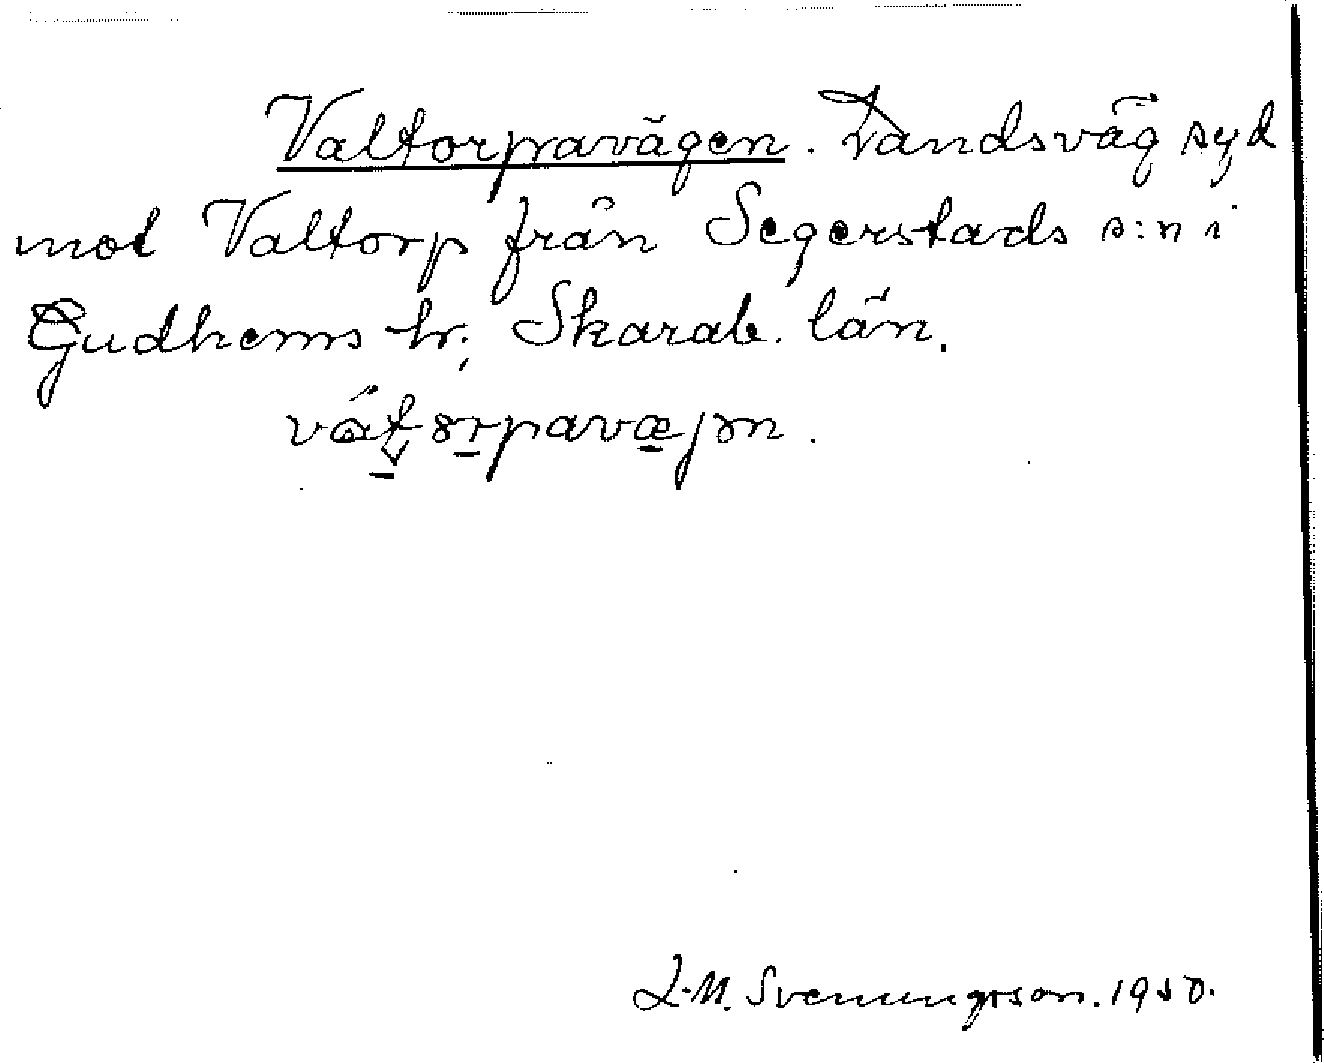 Valtorpavägen. Landsväg syd
mot Valtorp från Segerstads s:n i
Gudhems hr; Skarab. län.
L-M. Svenungsson. 1950.